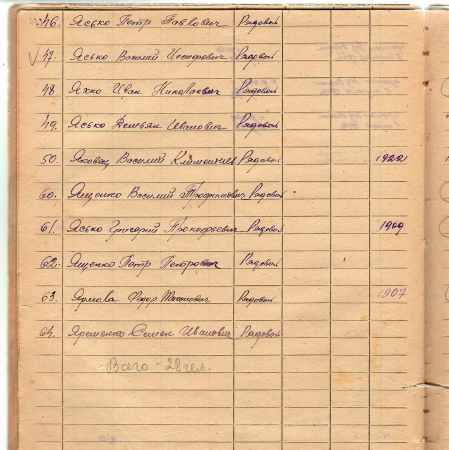 46. Ясько Петр Павлович Рядовой
47. Ясько Василий Иосифович Рядовой
48. Яхно Иван Николаевич Рядовой
49. Ясько Демьян Иванович Рядовой
50. Яковец Василий Рядовой
60. Ященко Василий Трофимович Рядовой
61. Ясько Григорий Прокофьевич Рядовой 1909
62. Ященко Петр Петрович Рядовой
63. Федор Рядовой 1907
64. Яременко Семен Иванович Рядовой
Всего - 28 чел.